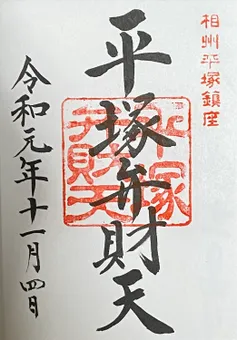 相州平塚鎮座
平塚弁財天
平塚弁財天
令和元年十一月四日